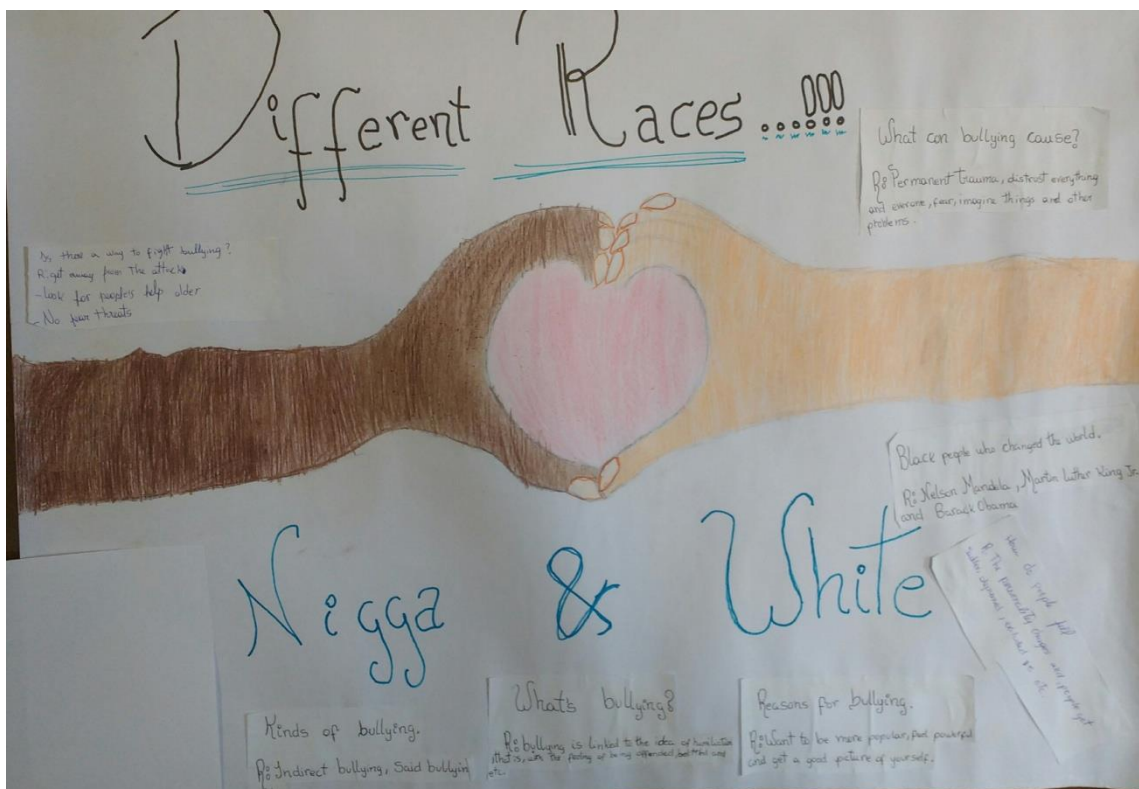 Different Races...!!!
What can bullying cause?
R: Permanent trauma, distrust everything
and everyone, fear, imagine things and other
problems.
Is there a way to fight bullying?
R. get away from the attacks
- Look for people's help older
- No fear threats
Black people who changed the world.
R: Nelson Mandela, Martin Luther King Jr.
and Barack Obama
Nigga & White
How do people fell
R. The personality changes and people get
etc
Kinds of bullying.
R: Indirect bullying, Said bullyin
What's bullying?
R: bullying is linked to the idea of humiliation
,that is, the feeling of being offended, and
etc.
Reasons for bullying.
R: Want to be more popular, feel powerful
and get a good picture of yourself.